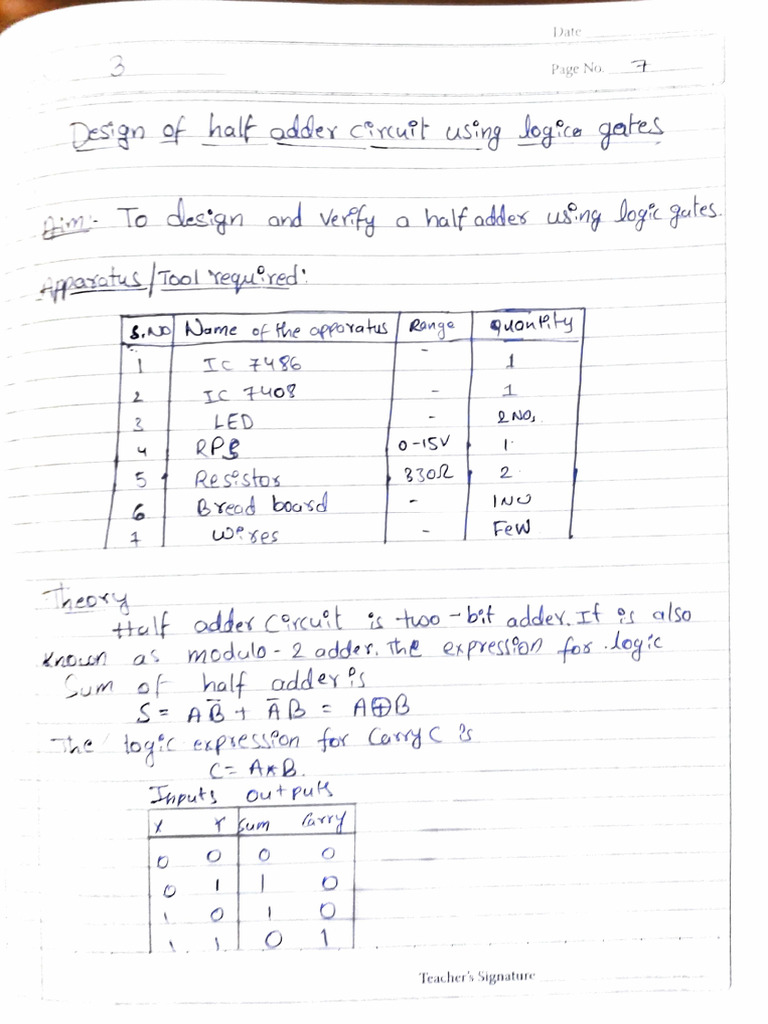 Date
3
Page No. 7
Design of half adder circuit using logice gates
Aim:- To design and verify a half adder using logic gates.
Apparatus/Tool required:
S.NO Name of the apparatus Range Quantity
1 IC 7486 - 1
2 IC 7408 - 1
3 LED - 2 NO,
4 RPS 0-15V 1.
5 Resistor 330Ω 2
6 Bread board - 1 NO
7 Wires - Few
Theory
Half adder circuit is two-bit adder. If is also
known as modulo-2 adder. The expression for logic
Sum of half adder is
S = AB̅ + A̅B = A⊕B
The logic expression for Carry C is
C = A*B.
Inputs outputs
X Y Sum Carry
0 0 0 0
0 1 1 0
1 0 1 0
1 1 0 1
Teacher's Signature